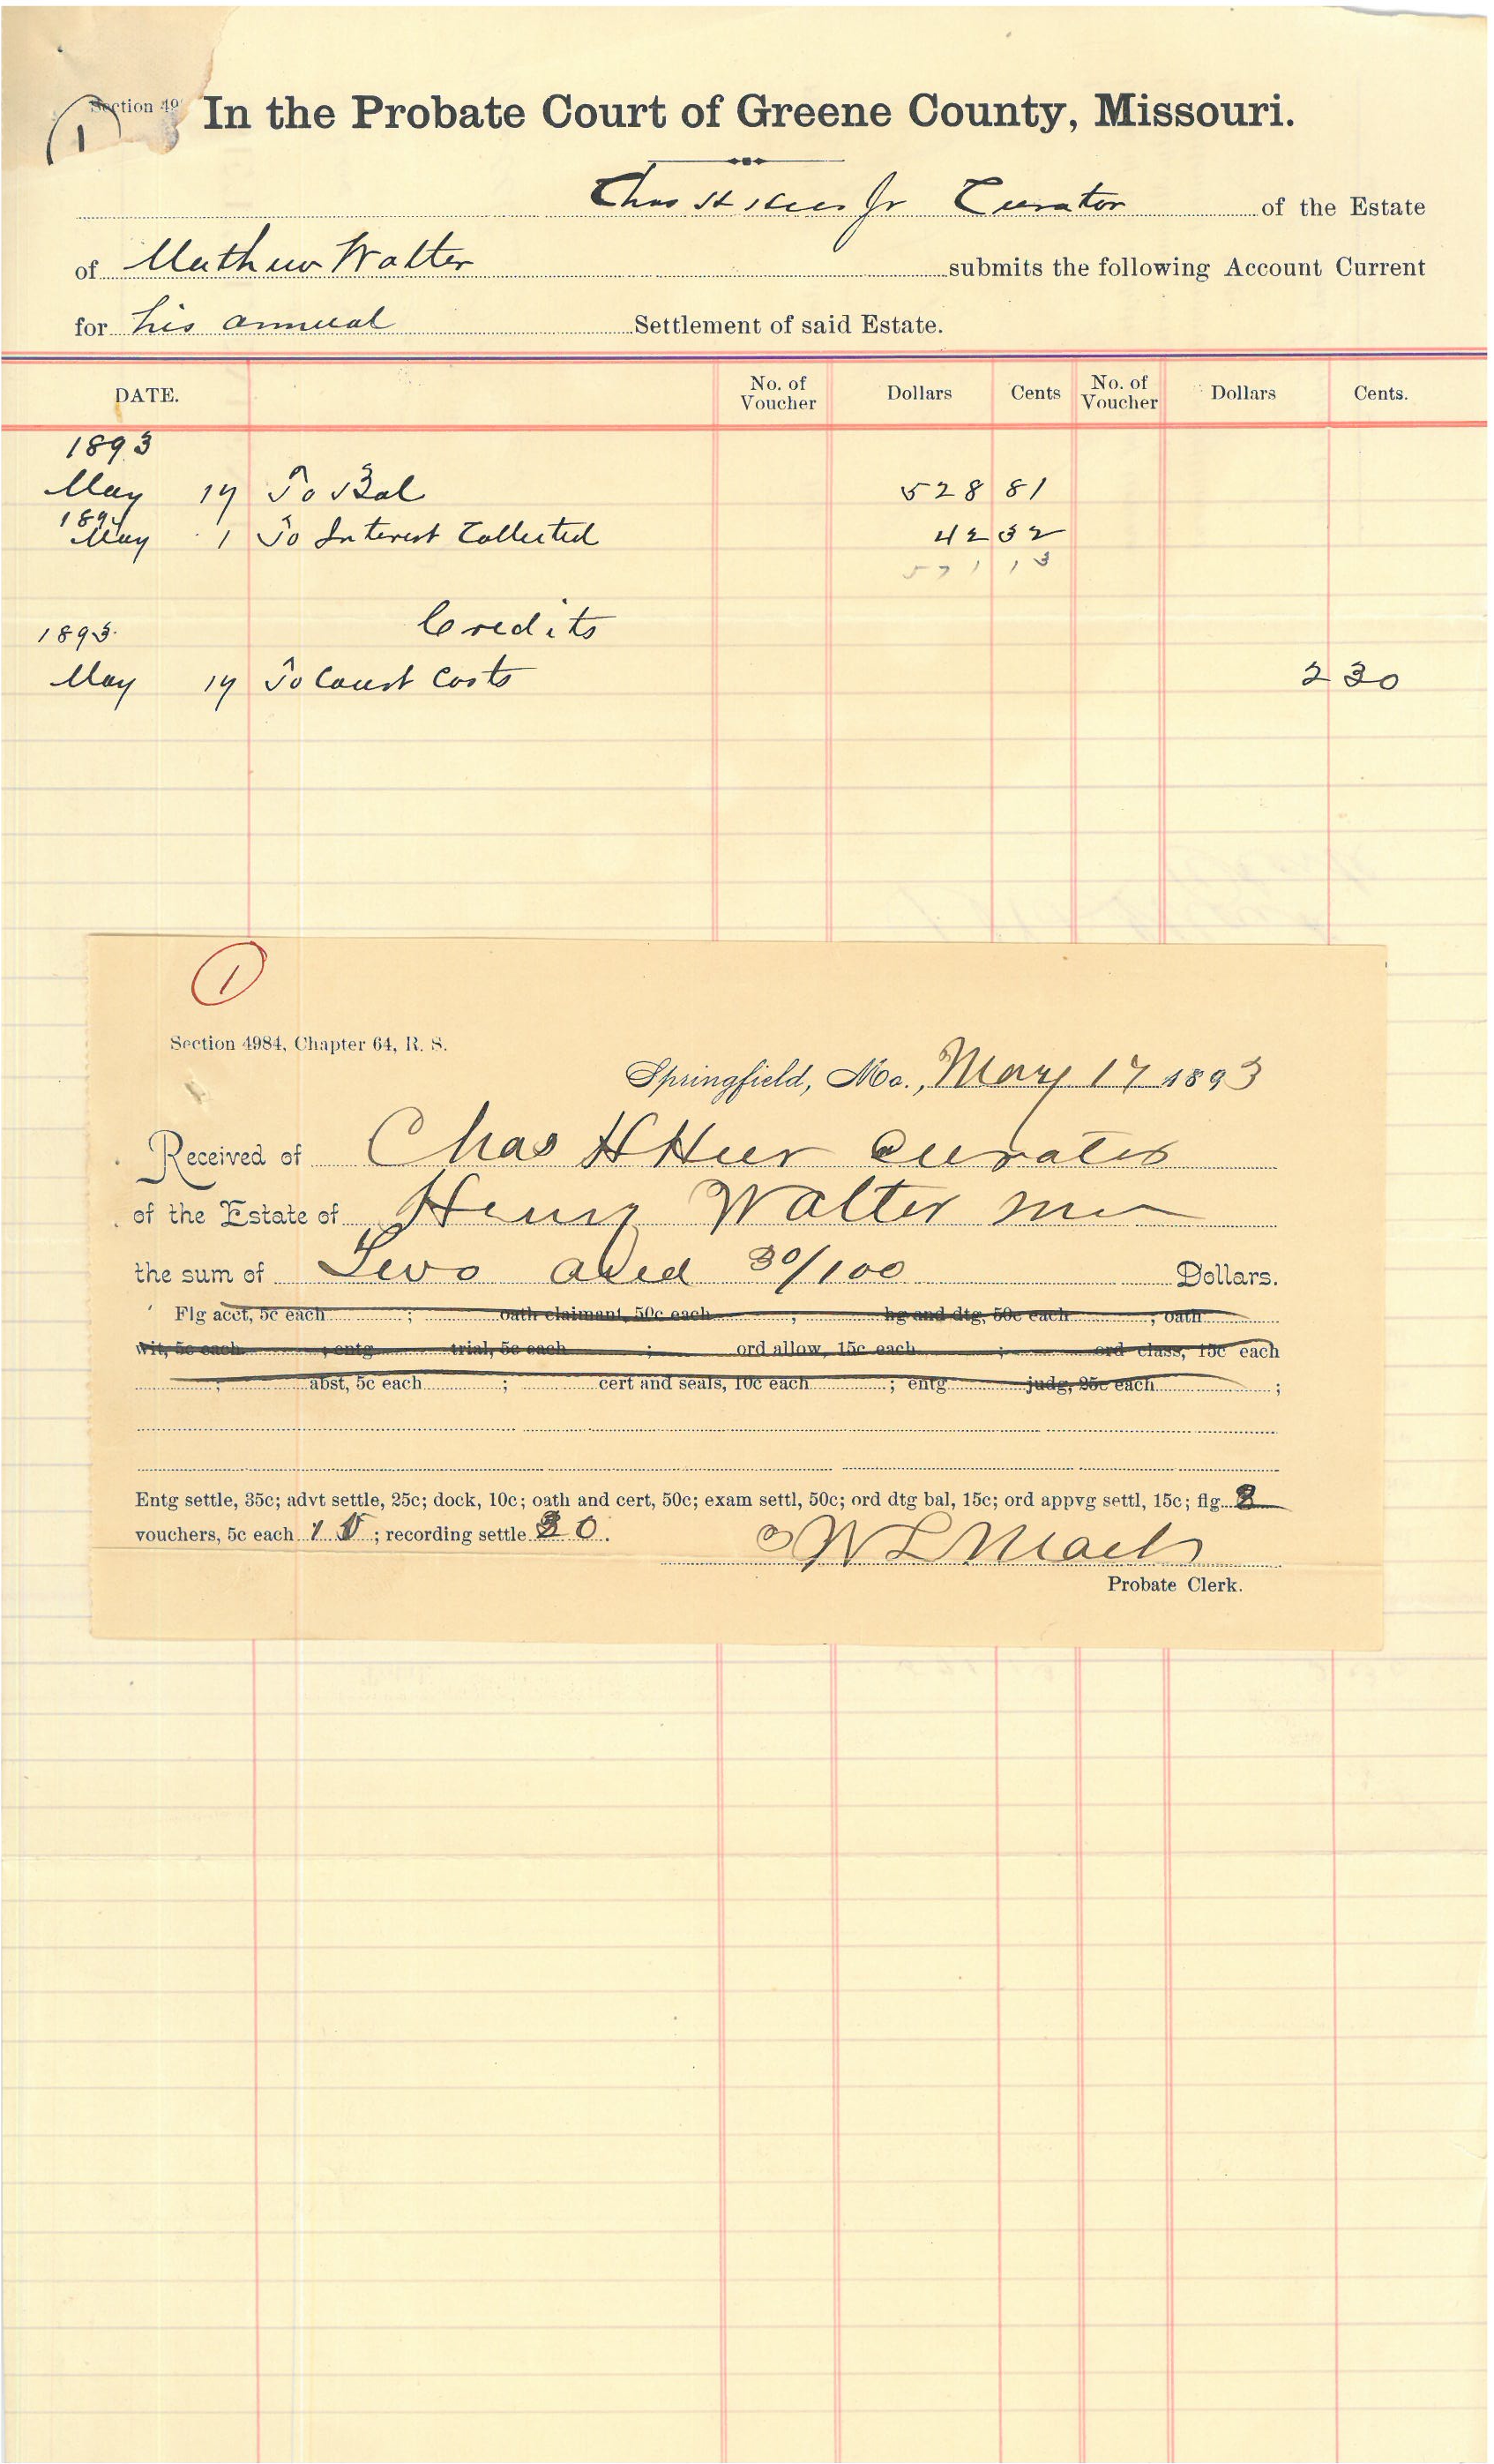 Section 49
1
In the Probate Court of Greene County, Missouri.
Chas H Heer Jr Curator of the Estate
of Mathew Walter submits the following Account Current
for his annual Settlement of said Estate.
DATE. No. of Voucher Dollars Cents No. of Voucher Dollars Cents.
1893
May 17 To Bal 528 81
189
May 1 To Interest Collected 42 32
571 13
Credits
1893.
May 17 To Court Costs 2 30
1
Section 4984, Chapter 64, R. S.
Springfield, Mo., May 17 1893
Received of Chas H Heer Curator
of the Estate of Henry Walter
the sum of Two and 30/100 Dollars.
Flg acct, 5c each ; oath claimant, 50c each ; hg and dtg, 50c each ; oath
wit, 5c each ; entg trial, 5c each ; ord allow, 15c each ; ord class, 15c each
; abst, 5c each ; cert and seals, 10c each ; entg judg, 25c each ;
Entg settle, 35c; advt settle, 25c; dock, 10c; oath and cert, 50c; exam settl, 50c; ord dtg bal, 15c; ord appvg settl, 15c; flg
vouchers, 5c each ; recording settle 30.
Probate Clerk.